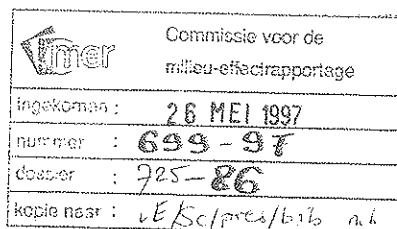 mer
Commissie voor de
milieu-effectrapportage
ingekomen : 26 MEI 1997
nummer : 699-97
dossier : 725-86
kopie naar : vE/Sc/pres/bib